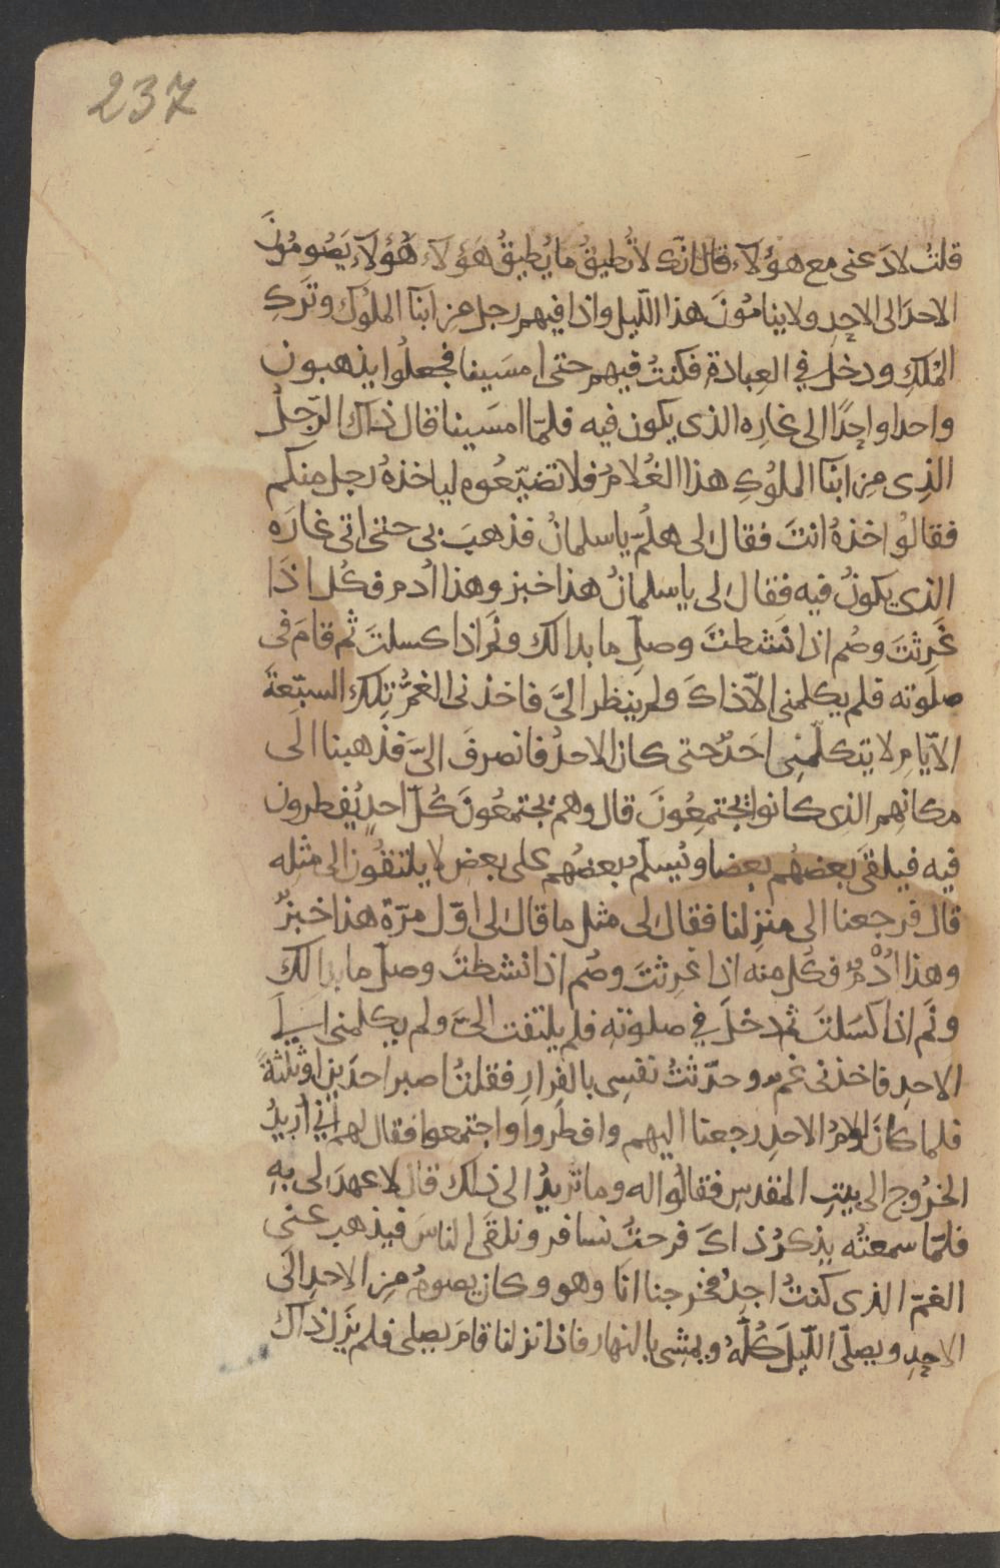 237
قلتُ لا دَعنى مع هؤلآءِ قال انّك لا تُطيقُ ما يُطيقُ هَؤلآء هُؤلآءِ يَصُومُونَ
الاحدَ الى الاحِدِ ولا ينامُونَ هذا اللّيل واذا فيهم رجل مِن ابنآ الملوُك وتَركِ
المُلكِ ودخلُ في العِبادةِ فكنتُ فيهم حتى امسَينا فجعلُوا يذهبون
واحدا واحِدًا الى غارِه الذى يكون فيه فلمّا امسَينا قال ذلك الرّجلُ
الذِى مِن ابنآ الملوُكِ هذا الغُلامُ فلا تضيّعُوه لياخذهُ رجل منكم
فقالوُا خذهُ انتَ فقال لى هلُمّ يا سلمانُ فذهبَ بى حتى اتى غارَه
الذى يكونُ فيه فقال لى يا سلمانُ هذا خبز وهذا اُدم فكُل اذَا
غَرِثتَ وصُم اذا نَشطتَ وصلِّ ما بدا لك ونَم اذا كسلتَ ثم قامَ فى
صلوته فلم يكلمنى الّا ذاكَ ولم ينظر اليَّ فاخذنى الغمُّ تِلك السبّعةَ
الايّامِ لا يتكلّمنِى احَدٌ حتى كان الاحدُ فانصرفَ اليّ فذهبنا الى
مكانهم الذى كانوا يجتمِعُونَ قال وهم يجتمعُونَ كُلّ احدٍ يُفطرون
فيه فيلقَى بعضهُم بعضا ويُسلّم بعضُهم على بعضٍ لا يلتقُون الى مثله
قال فرجعنا الى منزلنا فقال لى مثل ما قال لى اوّل مرّة هذا خبزٌ
وهذا اُدْمٌ فكُل منه اذا غرِثتَ وصُم اذا نشطتَ وصلّ ما بدا لكَ
ونَم اذا كسَلتَ ثم دخلَ في صلوتِهِ فلم يلتفت اليَّ ولم يكلمنى الى
الاحدِ فاخذنى غم وحدّثتُ نفسِى بالفِرارِ فقلتُ اصبر احدَين او ثلثةً
فلما كانَ الاحدِ رجعنا اليهم وافطرُوا واجتمعوا فقال لهم انّي اُريدُ
الخرُوج الى بيتِ المقدسِ فقالُوا له وما تُريدُ الى ذلك قال لا عهدَ لى بِهِ
فلمّا سمعتُه يذكرُ ذاكَ فرحتُ نسافر ونلقَى الناسَ فيذهب عنى
الغمّ الذى كنتُ اجِدُ فخرجنا انَا وهو وكان يصومُ مِن الاحدِ الى
الاحدِ ويصلّى اللّيلَ كُلّهُ ويمشِى بالنهار فاذا نزلنا قامَ يصلى فلم يزَل ذاك